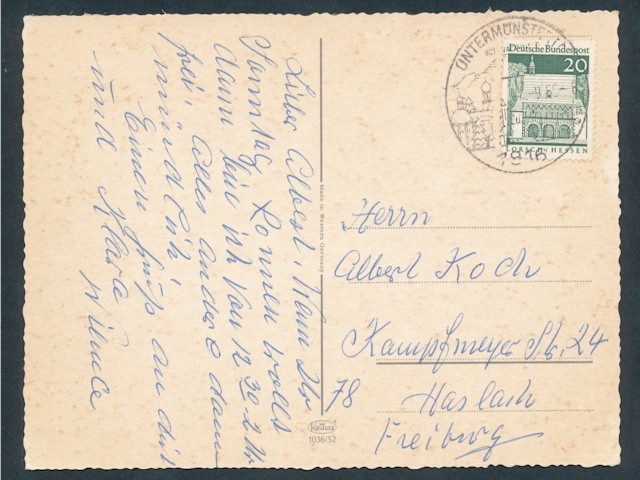 Lieber Albert, Wenn Du
Sonntag kommen wolltest
dann bin ich von 12.30-2 Uhr
frei. Alles andere dann
mündlich
Einen Gruß an dich
und Klara
Made in Western Germany
Krüger
1036/52
UNTERMÜNSTERTAL
7816
Deutsche Bundespost
20
LORSCH/HESSEN
Herrn
Albert Koch
Kampfmeyer Str. 24
78 Haslach
Freiburg